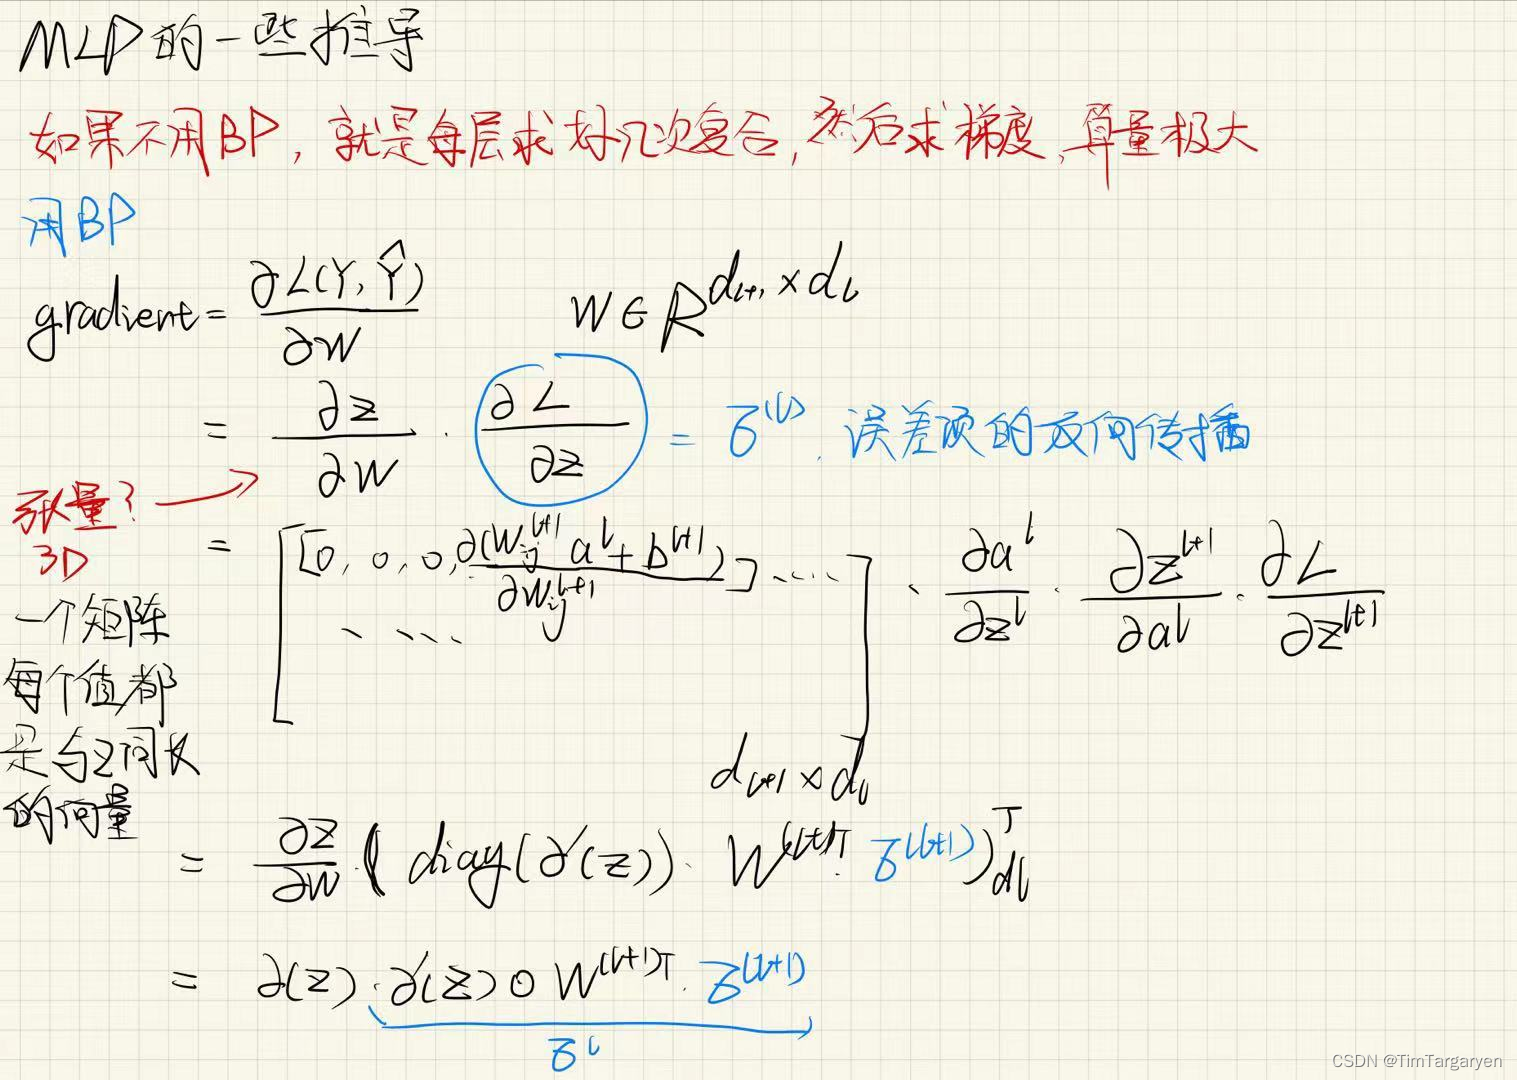 MLP的一些推导
如果不用BP，就是每层求好几次复合，然后求梯度，算量极大
用BP
gradient = ∂L(Y, Ŷ) / ∂W    W ∈ R^{d_{l+1} × d_l}
= ∂z/∂W · ∂L/∂z = δ^{(l)}, 误差项的反向传播
张量？→
3D
一个矩阵
每个值都
是与z同长
的向量
= [[0, 0, 0, ∂(W_{ij}^{l+1} a^l + b^{l+1}) / ∂W_{ij}^{l+1}] .... ....]_{d_{l+1} × d_l} · ∂a^l/∂z^l · ∂z^{l+1}/∂a^l · ∂L/∂z^{l+1}
= ∂z/∂W · (diag(∂'(z)) · W^{(l+1)T} · δ^{(l+1)})^T_{dl}
= ∂(z) · ∂'(z) ⊙ W^{(l+1)T} · δ^{(l+1)}
δ^l
CSDN @TimTargaryen